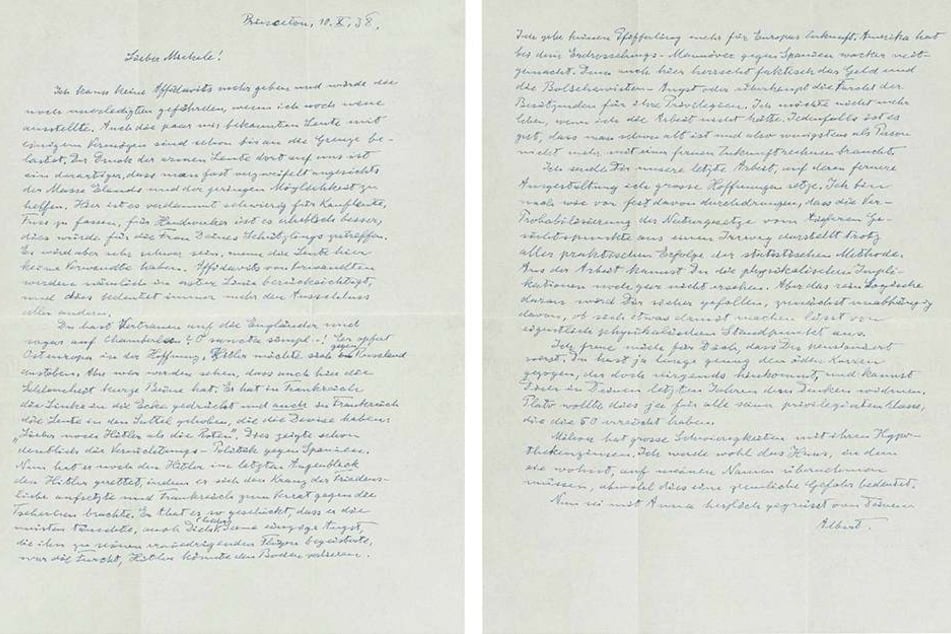 Princeton, 10.X.38.
Lieber Michele!
Ich kann keine Affidavits mehr geben und würde die
noch unerledigten gefährden, wenn ich noch neue
ausstellte. Auch die paar mir bekannten Leute mit
einigem Vermögen sind schon bis an die Grenze be-
lastet. Der Druck der armen Leute dort auf uns ist
ein derartiger, dass man fast verzweifelt angesichts
der Masse Elends und der geringen Möglichkeit zu
helfen. Hier ist es verdammt schwierig für Kaufleute,
Fuss zu fassen, für Handwerker ist es erheblich besser,
dies würde für die Frau Deines Schützlings zutreffen.
Es wird aber sehr schwer sein, wenn die Leute hier
keine Verwandte haben. Affidavits von Verwandten
werden nämlich in erster Linie berücksichtigt,
und dies bedeutet immer mehr den Ausschluss
aller anderen.
Du hast Vertrauen auf die Engländer und
sogar auf Chamberlain? O sancta simpl..! Er opfert
Osteuropa in der Hoffnung, Hitler möchte sich gegen Russland
austoben. Aber wir werden sehen, dass auch hier die
Schlauheit kurze Beine hat. Er hat in Frankreich
die Linke in die Ecke gedrückt und auch in Frankreich
die Leute in den Sattel gehoben, die die Devise haben:
„Lieber noch Hitler als die Roten". Dies zeigte schon
deutlich die Vernichtungs-Politik gegen Spanien.
Nun hat er noch den Hitler im letzten Augenblick
den Hitler gerettet, indem er sich den Kranz der Friedens-
liebe aufsetzte und Frankreich zum Verrat gegen die
Tschechen brachte. Er that es so geschickt, dass er die
meisten täuschte, auch Dich (leider). Seine einzige Angst,
die ihn zu seinen erniedrigenden Flügen begeisterte,
war die Furcht, Hitler könnte den Boden verlieren.
Ich gebe keinen Pfifferling mehr für Europas Zukunft. Amerika hat
bei dem Erdrosselungs-Manöver gegen Spanien wacker mit-
gemacht. Denn auch hier herrscht faktisch das Geld und
die Bolschewisten-Angst oder überhaupt die Furcht der
Besitzenden für ihre Privilegien. Ich möchte nicht mehr
leben, wenn ich die Arbeit nicht hätte. Jedenfalls ist es
gut, dass man schon alt ist und also wenigstens als Person
nicht mehr mit einer fernen Zukunft rechnen braucht.
Ich sende Dir unsere letzte Arbeit, auf deren fernere
Ausgestaltung ich grosse Hoffnungen setze. Ich bin
nach wie vor fest davon durchdrungen, dass die Ver-
Probabilisierung der Naturgesetze vom tieferen Ge-
sichtspunkte aus einen Irrweg darstellt trotz
aller praktischen Erfolge der statistischen Methode.
Aus der Arbeit kannst Du die physikalischen Impli-
kationen noch gar nicht ersehen. Aber das rein Logische
daran wird Dir sicher gefallen, zunächst unabhängig
davon, ob sich etwas damit machen lässt vom
eigentlich physikalischen Standpunkt aus.
Ich freue mich für Dich, dass Du pensioniert
wirst. Du hast ja lange genug den öden Karren
gezogen, der doch nirgends hinkommt, und kannst
Dich in Deinen letzten Jahren dem Denken widmen.
Plato wollte dies ja für alle seine privilegierten Klasse,
die die 50 erreicht haben.
Mileva hat grosse Schwierigkeiten mit ihren Hypo-
thekenzinsen. Ich werde wohl das Haus, in dem
sie wohnt, auf meinen Namen übernehmen
müssen, obwohl dies eine ziemliche Gefahr bedeutet.
Nun sei mit Anna herzlich gegrüsst von Deinem
Albert.